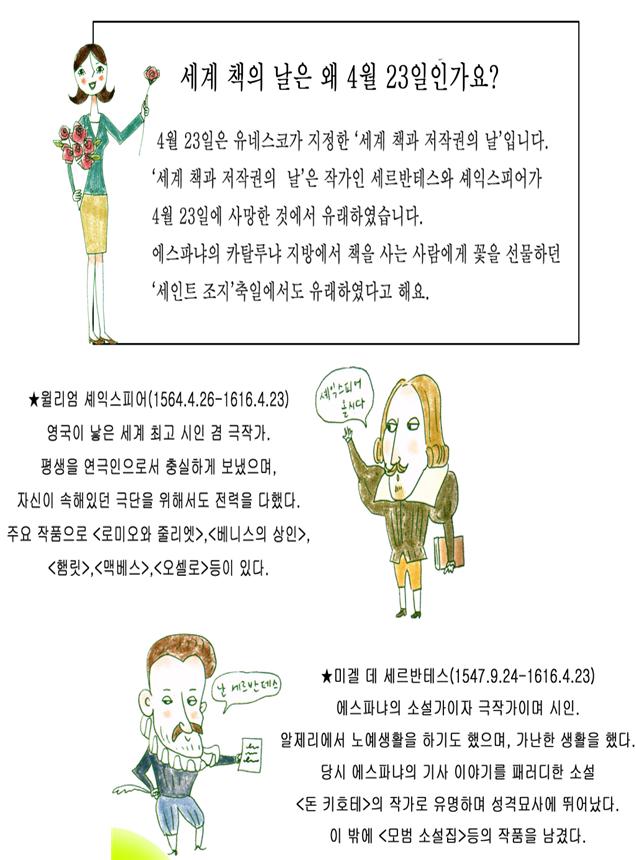 세계 책의 날은 왜 4월 23일인가요?
4월 23일은 유네스코가 지정한 ‘세계 책과 저작권의 날’입니다.
‘세계 책과 저작권의 날’은 작가인 세르반테스와 셰익스피어가
4월 23일에 사망한 것에서 유래하였습니다.
에스파냐의 카탈루냐 지방에서 책을 사는 사람에게 꽃을 선물하던
‘세인트 조지’축일에서도 유래하였다고 해요.
★윌리엄 셰익스피어(1564.4.26-1616.4.23)
영국이 낳은 세계 최고 시인 겸 극작가.
평생을 연극인으로서 충실하게 보냈으며,
자신이 속해있던 극단을 위해서도 전력을 다했다.
주요 작품으로 <로미오와 줄리엣>,<베니스의 상인>,
<햄릿>,<맥베스>,<오셀로>등이 있다.
셰익스피어
올시다
난 세르반테스
★미겔 데 세르반테스(1547.9.24-1616.4.23)
에스파냐의 소설가이자 극작가이며 시인.
알제리에서 노예생활을 하기도 했으며, 가난한 생활을 했다.
당시 에스파냐의 기사 이야기를 패러디한 소설
<돈 키호테>의 작가로 유명하며 성격묘사에 뛰어났다.
이 밖에 <모범 소설집>등의 작품을 남겼다.